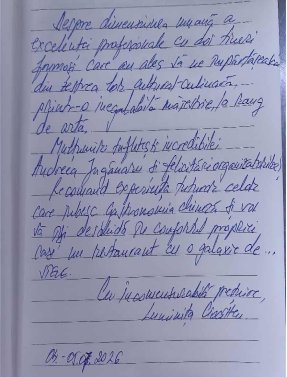 Despre dimensiunea umană a
excelenței profesionale cu doi tineri
frumoși care au ales să ne împărtășească
din zestrea lor cultural-culinară,
printr-o inegalabilă măiestrie, la rang
de artă.
Mulțumiri sufletești incredibilei
Andreea Jugănaru și felicitări organizatorilor!
Recomand experiența tuturor celor
care iubesc gastronomia chineză și vor
să își deschidă în confortul propriei
case un restaurant cu o galaxie de...
stele.
Cu incomensurabilă prețuire,
Luminița
2026